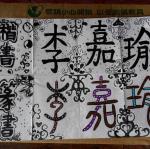 楷書
李嘉瑜
篆書
李嘉瑜